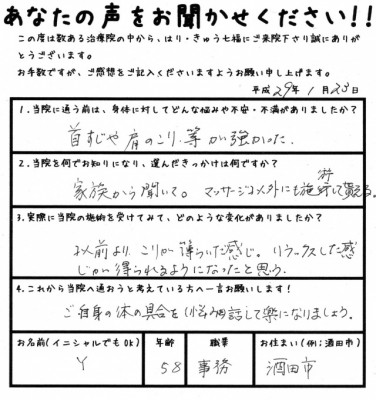 あなたの声をお聞かせください!!
この度は数ある治療院の中から、はり・きゅう七福にご来院下さり誠にありが
とうございます。
お手数ですが、ご感想をご記入くださいますようお願い申し上げます。
平成29年1月23日
1.当院に通う前は、身体に対してどんな悩みや不安・不満がありましたか?
首すじや肩のこり等が強かった.
2.当院を何でお知りになり、選んだきっかけは何ですか?
家族から聞いて。マッサージ以外にも施術して貰える。
3.実際に当院の施術を受けてみて、どのような変化がありましたか?
以前より、こりが薄らいだ感じ。リラックスした感
じが得られるようになったと思う.
4.これから当院へ通おうと考えている方へ一言お願いします!
ご自身の体の具合を(悩み)相談して楽になりましょう.
お名前(イニシャルでもOK) 年齢 職業 お住まい(例;酒田市)
Y 58 事務 酒田市